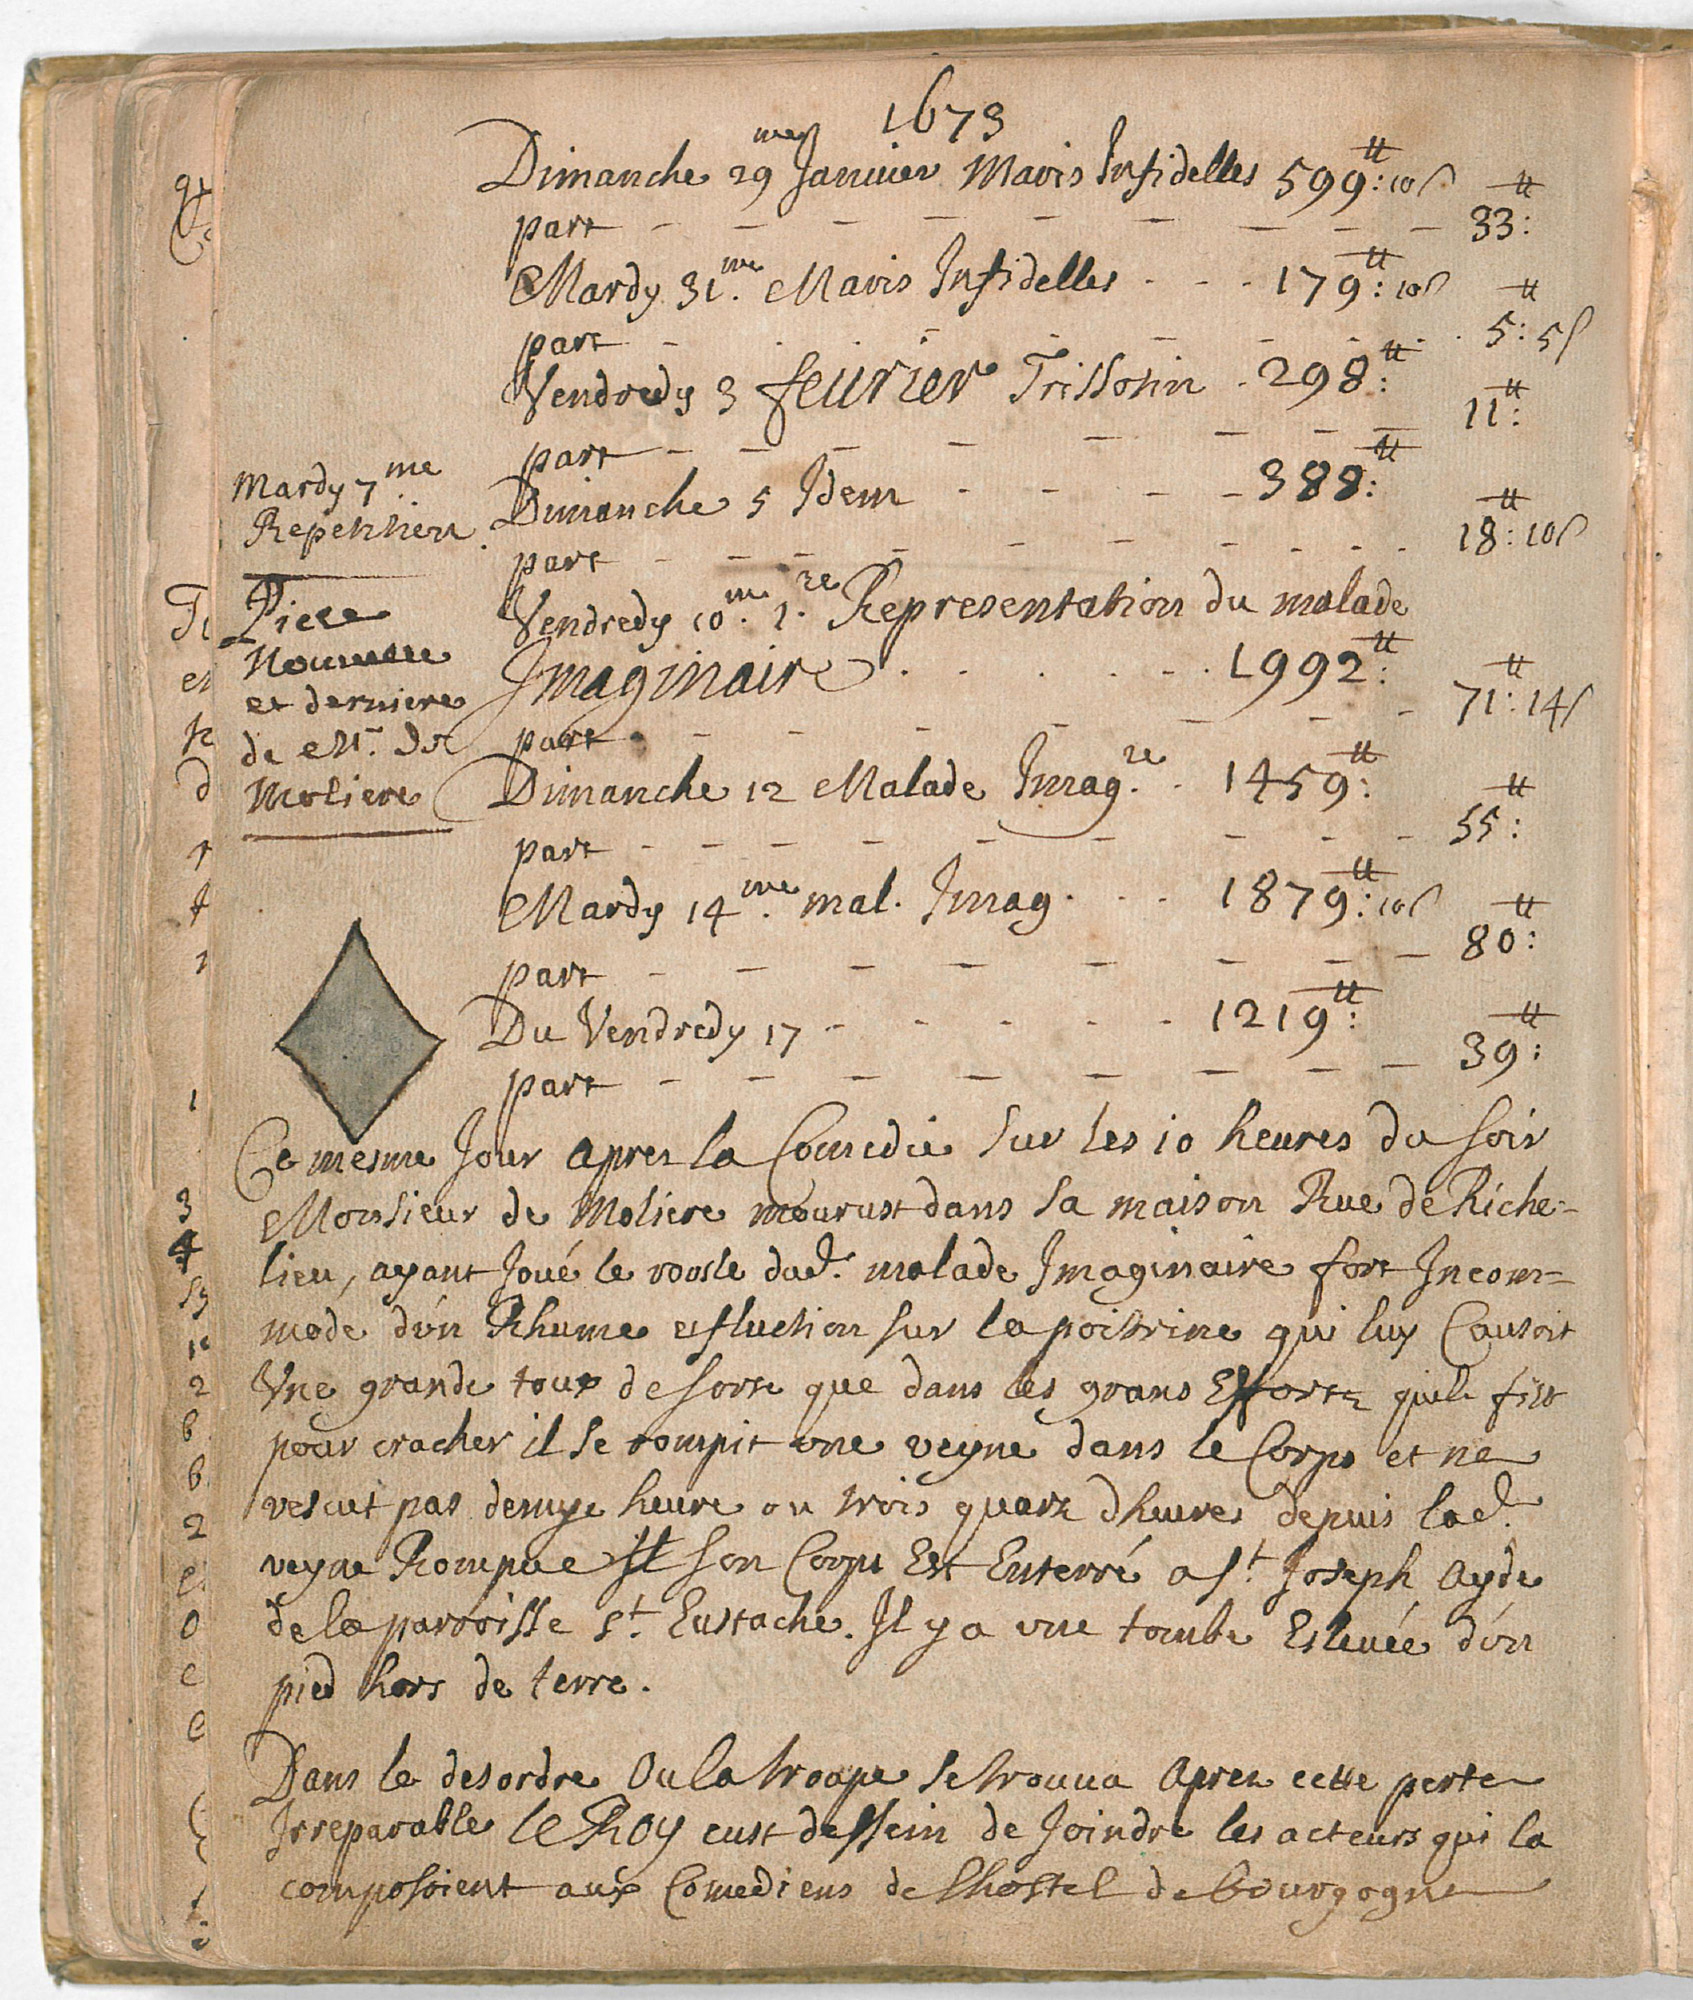 1673
Dimanche 29me Januier Maris Infidelles 599tt: 10s
part 33tt:
Mardy 31.me Maris Infidelles 179tt: 10s
part 5tt: 5s
Vendredy 3 feurier Trissotin 298tt:
part 11tt:
Mardy 7me
Repetition
Dimanche 5 Idem 388tt:
part 18tt: 10s
Piece
Nouuelle
et derniere
de Mr. de
Moliere
Vendredy 10me. 1.re Representation du malade
Imaginaire 1992tt:
part 71tt: 14s
Dimanche 12 Malade Imag.re 1459tt:
part 55tt:
Mardy 14me. mal. Imag. 1879tt: 10s
part 80tt:
Du Vendredy 17 1219tt:
part 39tt:
Ce mesme Jour apres la Comedie Sur les 10 heures du soir
Monsieur de Moliere mourust dans sa maison Rue de Riche=
lieu, ayant Joué le roosle dud. malade Imaginaire fort Incom=
modé d'un Rhume et fluction sur la poitrine qui luy Causoit
Vne grande toux de sorte que dans les grans Effortz quil fist
pour cracher il se rompit une veyne dans le Corps et ne
vescut pas demye heure ou trois quartz dheures depuis lad.
veyne Rompue Son Corps Est Enterré a St. Joseph ayde
de la parroisse St. Eustache. Il y a une tombe Esleuée d'un
pied hors de terre.
Dans le desordre Ou la troupe Se trouua Apres cette perte
Irreparable le Roy eust dessein de Joindre les acteurs qui la
composoient aux Comediens de lhostel de bourgogne